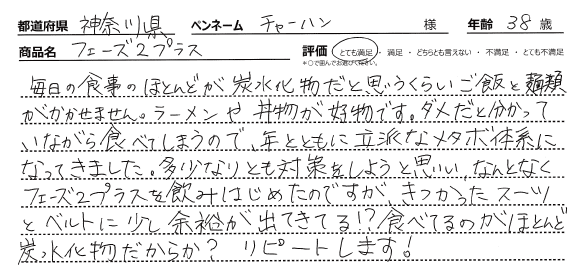 都道府県 神奈川県 ペンネーム チャーハン 様 年齢 38 歳
商品名 フェーズ2プラス 評価 とても満足 ・ 満足 ・ どちらとも言えない ・ 不満足 ・ とても不満足
*○で囲んでお選びください。
毎日の食事のほとんどが炭水化物だと思うくらいご飯と麺類
がかかせません。ラーメンや丼物が好物です。ダメだと分かって
いながら食べてしまうので、年とともに立派なメタボ体系に
なってきました。多少なりとも対策をしようと思い、なんとなく
フェーズ2プラスを飲みはじめたのですが、きつかったスーツ
とベルトに少し余裕が出てきてる!?食べてるのがほとんど
炭水化物だからか? リピートします!